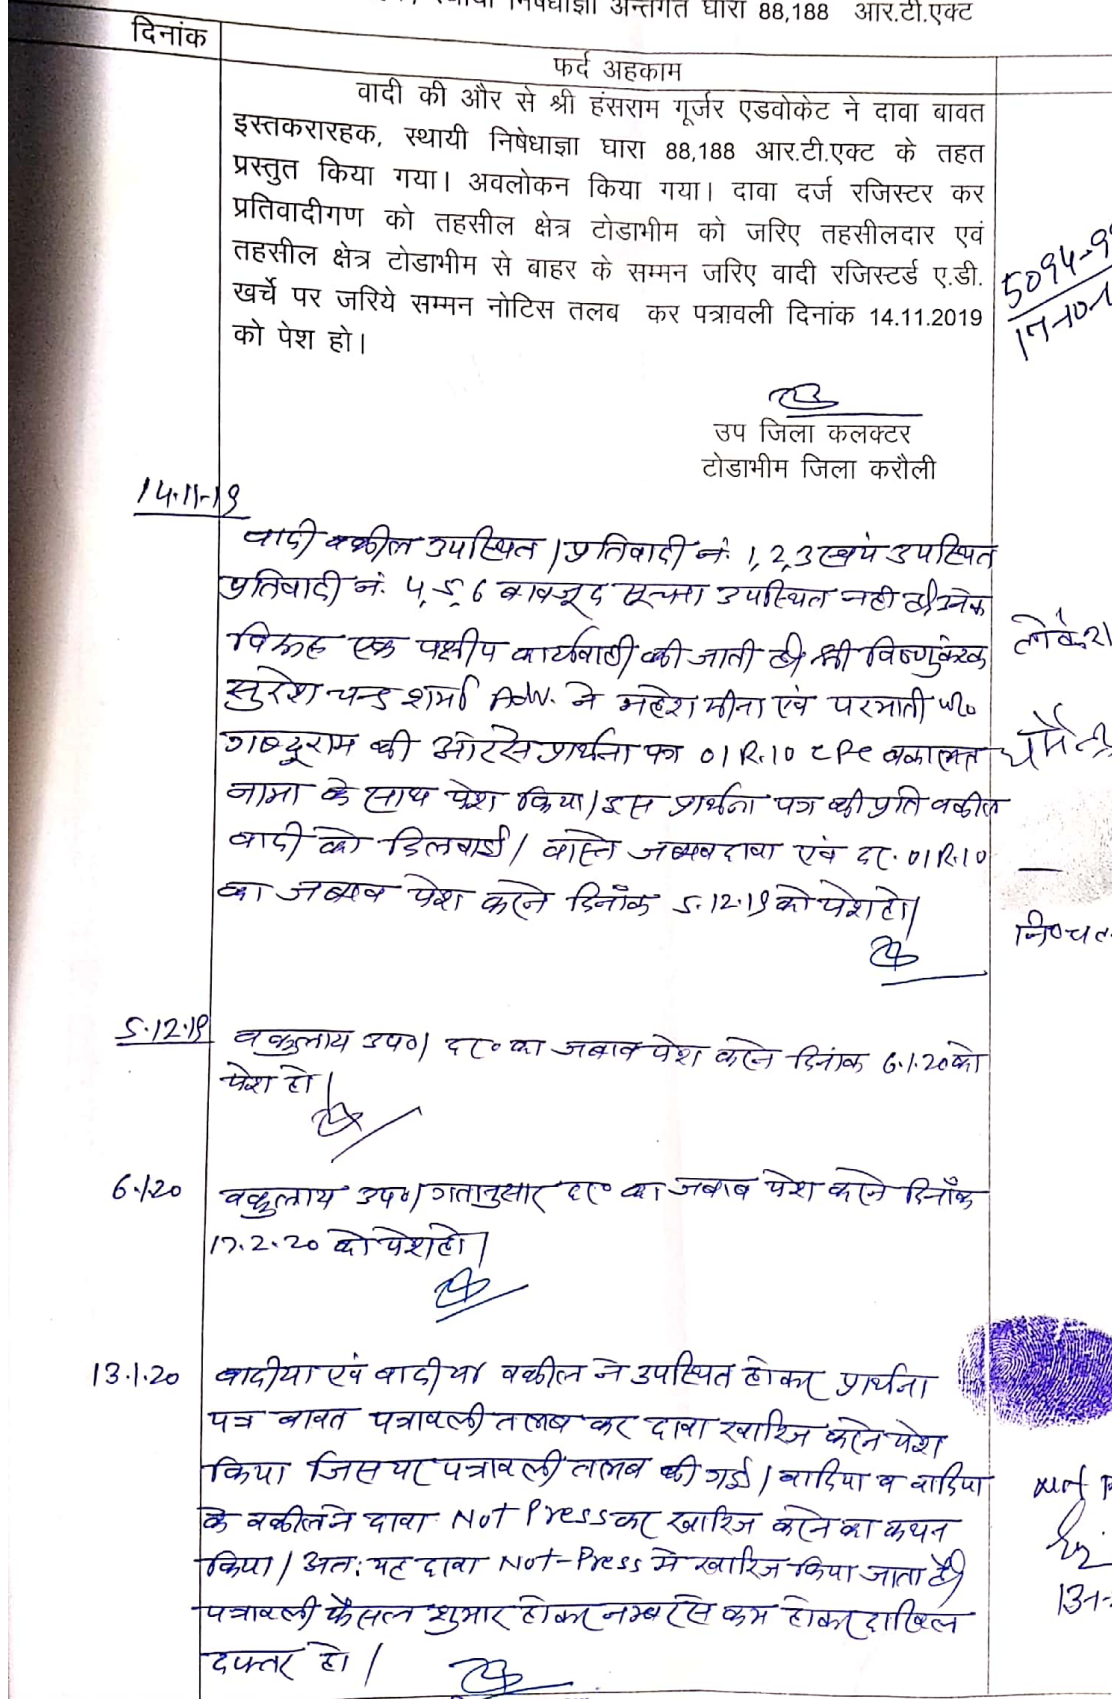 स्थायी निषेधाज्ञा अन्तर्गत घारा 88,188 आर.टी.एक्ट
दिनांक
फर्द अहकाम
वादी की और से श्री हंसराम गूर्जर एडवोकेट ने दावा बावत
इस्तकरारहक, स्थायी निषेधाज्ञा घारा 88,188 आर.टी.एक्ट के तहत
प्रस्तुत किया गया। अवलोकन किया गया। दावा दर्ज रजिस्टर कर
प्रतिवादीगण को तहसील क्षेत्र टोडाभीम को जरिए तहसीलदार एवं
तहसील क्षेत्र टोडाभीम से बाहर के सम्मन जरिए वादी रजिस्टर्ड ए.डी.
खर्चे पर जरिये सम्मन नोटिस तलब कर पत्रावली दिनांक 14.11.2019
को पेश हो।
5094-9
17-10-1
उप जिला कलक्टर
टोडाभीम जिला करौली
14.11-19
वादी वकील उपस्थित। प्रतिवादी नं. 1,2,3 स्वयं उपस्थित
प्रतिवादी नं. 4,5,6 बावजूद सूचना उपस्थित नही है।
विरूद्ध एक पक्षीय कार्यवाही की जाती है। श्री
सुरेश चन्द शर्मा Adv. ने महेश मीना एवं परभाती w/o
गब्दूराम की ओर से प्रार्थना पत्र 01 R.10 CPC वकालत
नामा के साथ पेश किया। इस प्रार्थना पत्र की प्रति वकील
वादी को दिलवाई। वास्ते जबाव दावा एवं दर. 01R.10
का जबाव पेश करने दिनाँक 5.12.19 को पेश हो।
5.12.19
वकुलाय उप०। दर० का जबाव पेश करने दिनांक 6.1.20 को
पेश हो।
6.1.20
वकुलाय उप०। गतानुसार दर० का जबाब पेश करने दिनाँक
17.2.20 को पेश हो।
13.1.20
वादीया एवं वादीया वकील ने उपस्थित होकर प्रार्थना
पत्र बावत पत्रावली तलब कर दावा खारिज करने पेश
किया जिस पर पत्रावली तलब की गई। वादिया व वादिया
के वकील ने दावा Not Press कर खारिज करने का कथन
किया। अत: यह दावा Not-Press मे खारिज किया जाता है।
पत्रावली फैसल शुमार होकर नम्बर से कम होकर दाखिल
दफ्तर हो।
13-1-